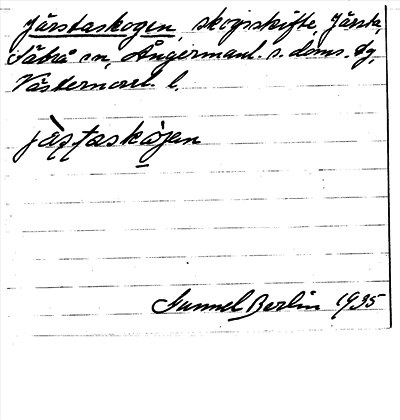 Järstaskogen, skogsskifte, Järsta,
Säbrå sn, Ångermanl. s. doms. dg,
Västernorrl. l.
jàștaskògen
Gunnel Berlin 1935